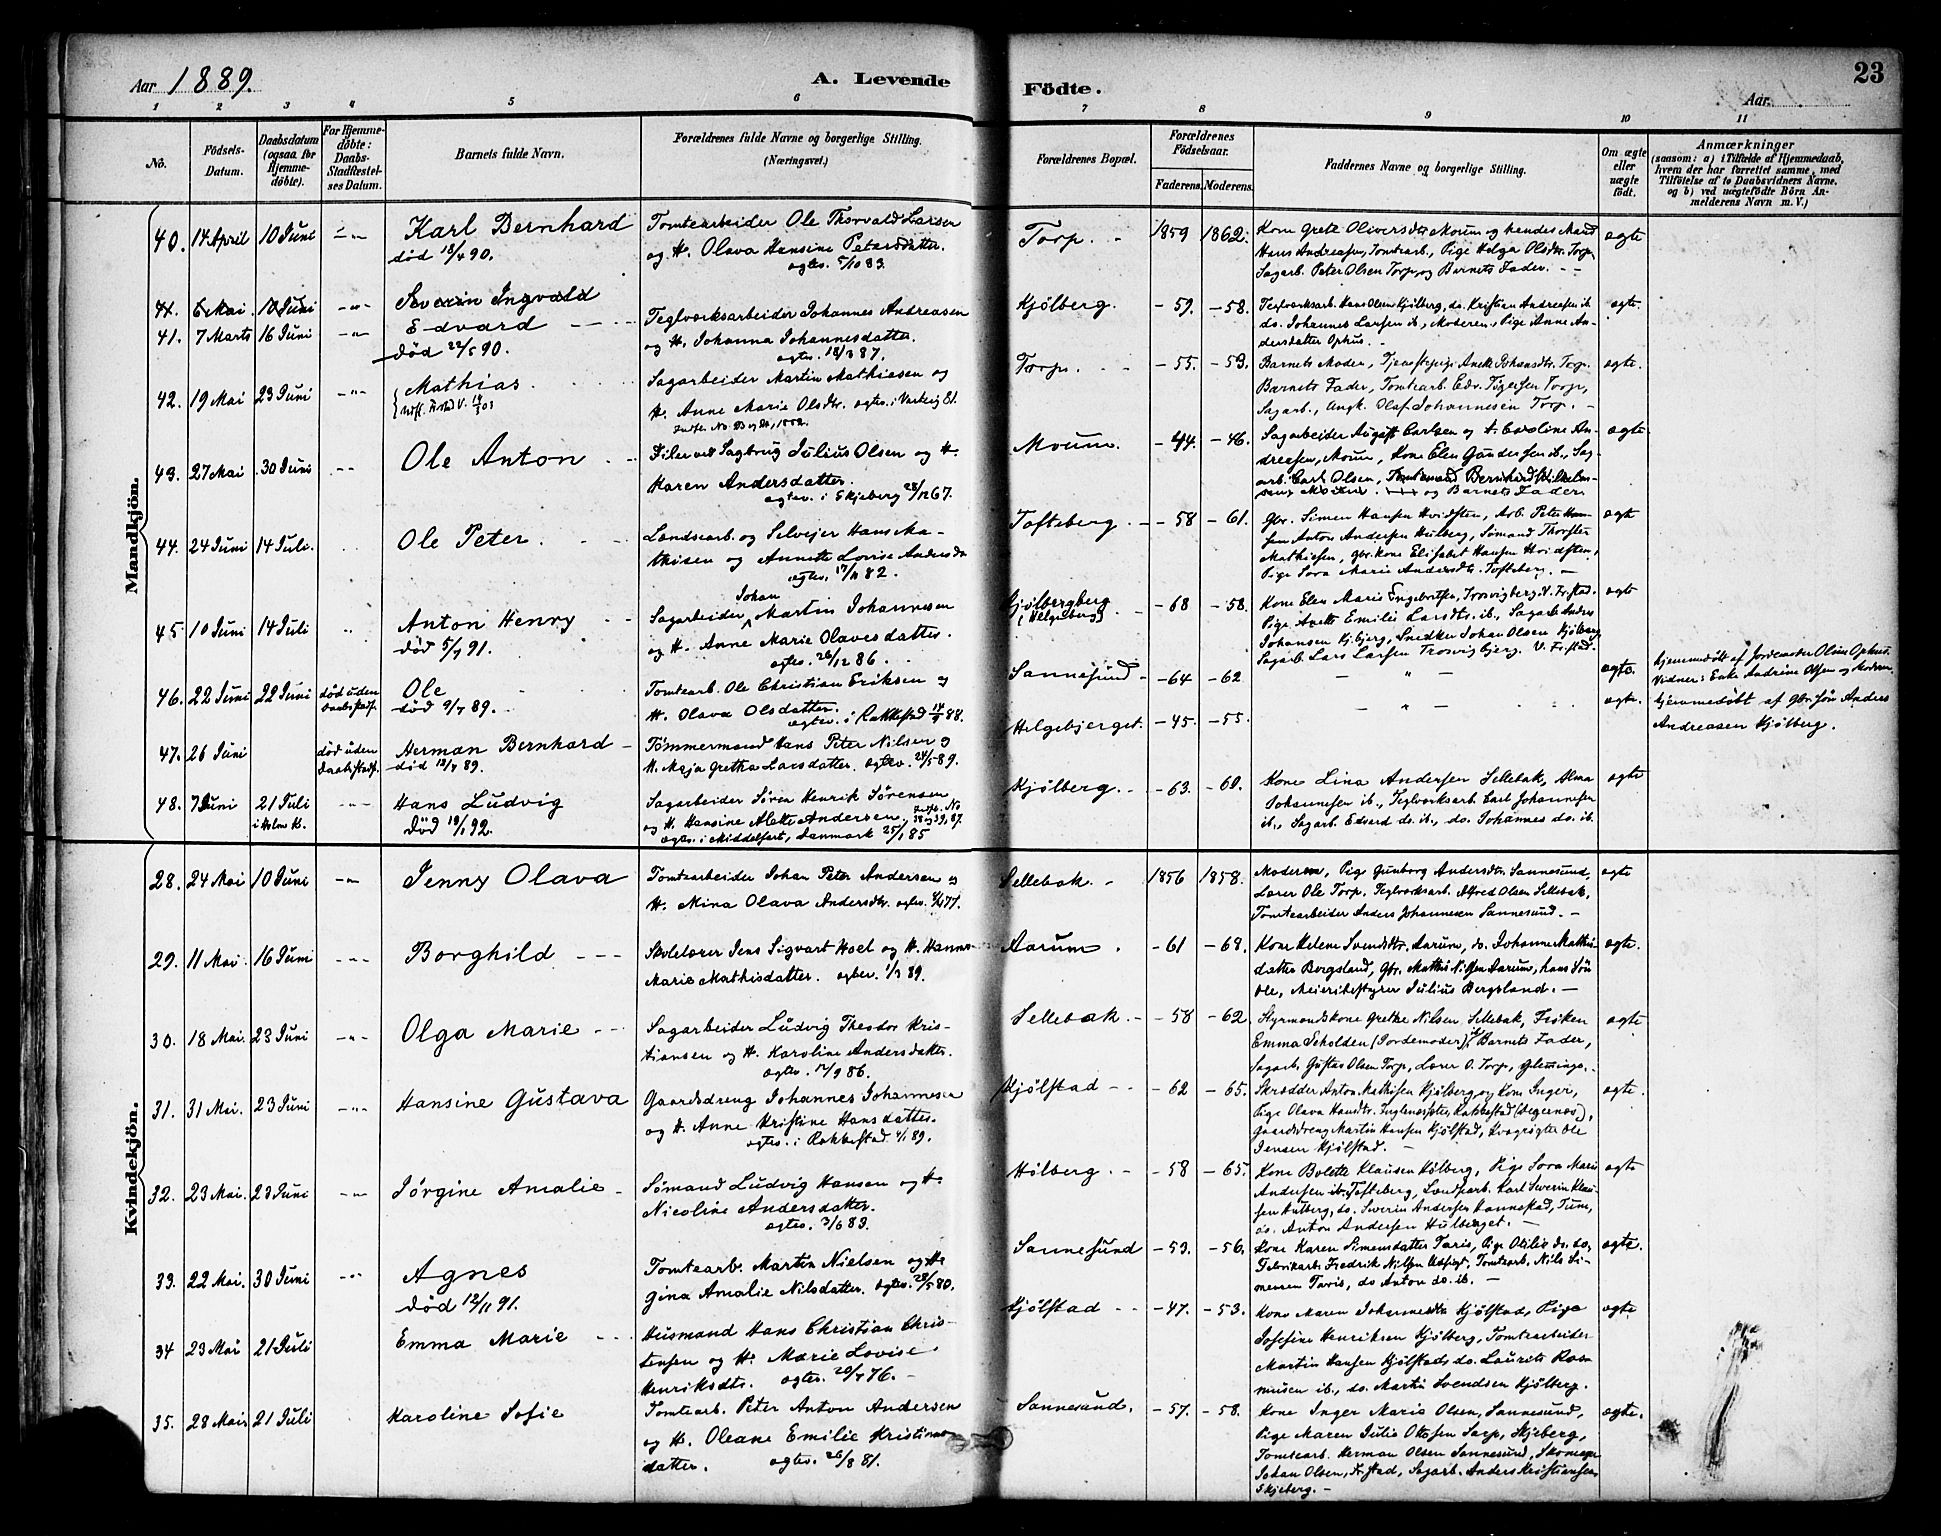 Aar 1889.
A. Levende
Födte.
23
Aar
1 2 3 4 5 6 7 8 9 10 11
No.
Födsels-
Datum.
Daabsdatum
(ogsaa for
Hjemme-
döbte).
For Hjemme-
döbte:
Daabs-
Stadfæstel-
ses Datum.
Barnets fulde Navn.
Forældrenes fulde Navne og borgerlige Stilling.
(Næringsvei.)
Forældrenes Bopæl.
Forældrenes
Födselsaar.
Faderens. Moderens.
Faddernes Navne og borgerlige Stilling.
Om ægte
eller
uægte
födt.
Anmærkninger
(saasom: a) i Tilfælde af Hjemmedaab,
hvem der har forrettet samme, med
Tilföielse af to Daabsvidners Navne.
og b) ved uægtefödte Börn An-
melderens Navn m. V.)
Mandkjön.
40. 14 April 10 Juni Karl Bernhard
død 18/4 90.
Tomtearbeider Ole Thorvald Larsen
og H. Olava Hansine Petersdatter.
ægtev. 5/10 83.
Torp. 1859 1862.
Kone Grete Oliversdtr Moum og hendes Mand
Hans Andreasen, Tomtearb., Pige Helga Olsdtr. Torp,
Sagarb. Peter Olsen Torp, og Barnets Fader.
ægte
41. 6 Mai 10 Juni Severin Ingvald
41. 7 Marts 16 Juni Edvard
død 22/5 90.
Teglværksarbeider Johannes Andreasen
og H. Johanna Johannesdatter.
ægtev. 18/3 87.
Kjølberg. - 59. - 58.
Teglværksarb. Hans Olsen Kjølberg, do. Kristian Andreasen ib.
do. Johannes Larsen ib., Moderen, Pige Anne An-
dersdatter Ophus.
ægte.
42. 19 Mai 23 Juni Mathias.
Sagarbeider Martin Mathiesen og
H. Anne Marie Olsdtr. ægtev. i Varteig
Torp. - 55. - 59.
Barnets Moder, Tjenestepige Anette Johansdtr. Torp.
Barnets Fader, Tomtearb. Edv. Torp,
Sagarb., Olaf Johannesen Torp.
ægte.
43. 27 Mai 30 Juni Ole Anton
Filer ved Sagbrug Julius Olsen og H.
Karen Andersdatter.
ægtev. i Skjeberg 28/12 67.
Moum - 44. - 46.
Sagarbeider August Carlsen og H. Caroline An-
dreasen, Moum, Kone Elen Gundersen ib., Sag-
arb. Carl Olsen, Bernhard Vilhelm-
sen Moum. og Barnets Fader
ægte
44. 24 Juni 14 Juli. Ole Peter.
Landsearb. og Selveier Hans Ma-
thisen og Annette Lovise Andersdtr
ægtev. 17/11 82.
Tofteberg - 58 - 61.
Gbr. Simen Hansen Hvidsten, Arb. Peter Han-
sen Anton Andersen Hulberg, Sømand Thorsten
Mathisen, Gbr. kone Elisabet Hansen Hvidsten,
Pige Sara Marie Andersdtr. Tofteberg.
ægte
45. 10 Juni 14 Juli Anton Henry
død 5/7 91.
Johan
Sagarbeider Martin Johannesen
og H. Anne Marie Olavesdatter.
ægtev. 26/12 86.
Kjølbergberg
(Helgeberg) - 68 - 58.
Kone Elen Marie Engebretsen, Trosvigberg V. Fr.stad.
Pige Anette Emilie Larsdtr. ib., Sagarb. Anders
Johansen Kjølberg, Snedker Johan Olsen Kjølberg
Sagarb. Lars Larsen Trosvigbjerg. V. Fr.stad.
ægte
46. 22 Juni 22 Juni død uden
Daabsstadf.
Ole
død 9/7 89.
Tomtearb. Ole Christian Eriksen og
H. Olava Olsdatter.
ægtev. i Rakkestad 14/9 88.
Sannesund - 64 - 62
ægte.
Hjemmedøbt af Jordemoder Oline Ophus.
Vidner: Enke Andrine Olsen og Moderen.
47. 26 Juni død uden
Daabsstadf.
Herman Bernhard
død 12/7 89.
Tømmermand Hans Peter Nilsen og
H. Maja Gretha Larsdatter. ægtev. 24/5 89.
Helgebjerget. - 45. - 55.
ægte.
Hjemmedøbt af Gbr. Søn Anders
Andreasen Kjølberg.
48. 7 Juni 21 Juli
i Holm K.
Hans Ludvig
død 19/1 92.
Sagarbeider Søren Henrik Sørensen
og H. Hansine Alette Andersen.
ægtev. i Middelfart, Danmark 25/1 85
Kjølberg. - 63. - 60.
Kone Lina Andersen Sellebak, Alma
Johannesen ib., Teglværksarb. Carl Johannesen
ib., Sagarb. Edvard do. ib., do. Johannes do. ib.
ægte
Kvindekjön.
28. 24 Mai 10 Juni Jenny Olava
Tomtearbeider Johan Peter Andersen og
H. Mina Olava Andersdtr. ægtev. 77.
Sellebak. 1856 1858.
Moderen, Pige Gunborg Andersdtr. Sannesund,
Lærer Ole Torp, Teglværksarb. Alfred Olsen Sellebak,
Tomtearbeider Anders Johannesen Sannesund.
ægte
29. 11 Mai. 16 Juni Borghild
Skolelærer Jens Sigvart Hoel og H. Hanna
Marie Mathisdatter. ægtev. 1/3 89.
Aarum - 61 - 68.
Kone Helene Svendsdtr. Aarum, do. Johanne Mathis-
datter Borgsland, Gbr. Mathis Nilsen Aarum, hans Søn
Ole, Meieribestyrer Julius Bergsland.
ægte.
30. 18 Mai. 23 Juni Olga Marie
Sagarbeider Ludvig Theodor Kris-
tiansen og H. Karoline Andersdatter.
ægtev. 17/9 86.
Sellebak. - 58 - 62.
Styrmandskone Grethe Nilsen Sellebak, Frøken
Emma Scholden (Jordemoder) ib., Barnets Fader,
Sagarb. Gustav Olsen Torp, Lærer O. Torp, Glemminge.
ægte
31. 31 Mai. 23 Juni Hansine Gustava
Gaardsdreng Johannes Johannesen
og H. Anne Kristine Hansdatter.
ægtev. i Rakkestad 4/1 89.
Kjølstad - 62 - 65.
Skrædder Anton Mathisen Kjølberg og Kone Inger,
Pige Olava Hansdtr. Rakkestad (Degernes),
Gaardsdreng Martin Hansen Kjølstad, Kvægrøgter Ole
Jensen Kjølstad.
ægte.
32. 23 Mai. 23 Juni Jørgine Amalie
Sømand Ludvig Hansen og H.
Nicoline Andersdatter.
ægtev. 3/6 83.
Hølberg - 58 - 65.
Kone Bolette Klausen Hølberg, Pige Sara Marie
Andersen ib. Tofteberg, Landsearb. Karl Severin Klau-
sen Hulberg, do. Severin Andersen Hannestad, Tune,
do. Anton Andersen Hulberget.
ægte
33. 22 Mai. 30 Juni Agnes
død 12/11 91.
Tomtearb. Martin Nielsen og H.
Gina Amalie Nilsdatter. ægtev. 29/5 80.
Sannesund - 53. - 56.
Kone Karen Simensdatter Taris, Pige Otilie do. do,
Fabrikarb. Fredrik Nilsen Udsigt, Tomtearb. Nils Si-
mensen Taris, do Anton do. ib.
ægte.
34 23 Mai 21 Juli Emma Marie
Husmand Hans Christian Chris-
tensen og H. Marie Lovise
Henriksdtr. ægtev. 20/7 76.
Kjølstad - 47. - 53.
Kone Maren Johannesdtr Kjølstad, Pige
Josefine Henriksen Kjølberg, Tomtearbeider
Martin Hansen Kjølstad, do. Laurits Ras-
musen ib., do. Martin Svendsen Kjølberg.
ægte
35. 28 Mai 21 Juli Karoline Sofie
Tomtearb. Peter Anton Andersen
og H. Oleane Emilie Kristians-
datter. ægtev. 26/3 81.
Sannesund. - 57. - 58.
Kone Inger Marie Olsen, Sannesund,
Pige Maren Julie Olsen Sarp, Skjeberg,
Tomtearb. Herman Olsen Sannesund, Skomager
Johan Olsen, Fr.stad, Sagarb. Anders Kristiansen
Skjeberg.
ægte.